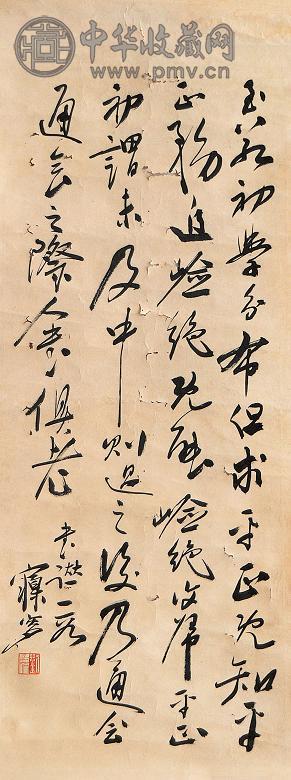 中华收藏网
www.pmv.cn
至如初學分布但求平正既知平
正務追險絕既能險絕復歸平正
初謂未及中則過之後乃通會
通會之際人書俱老
書譜一